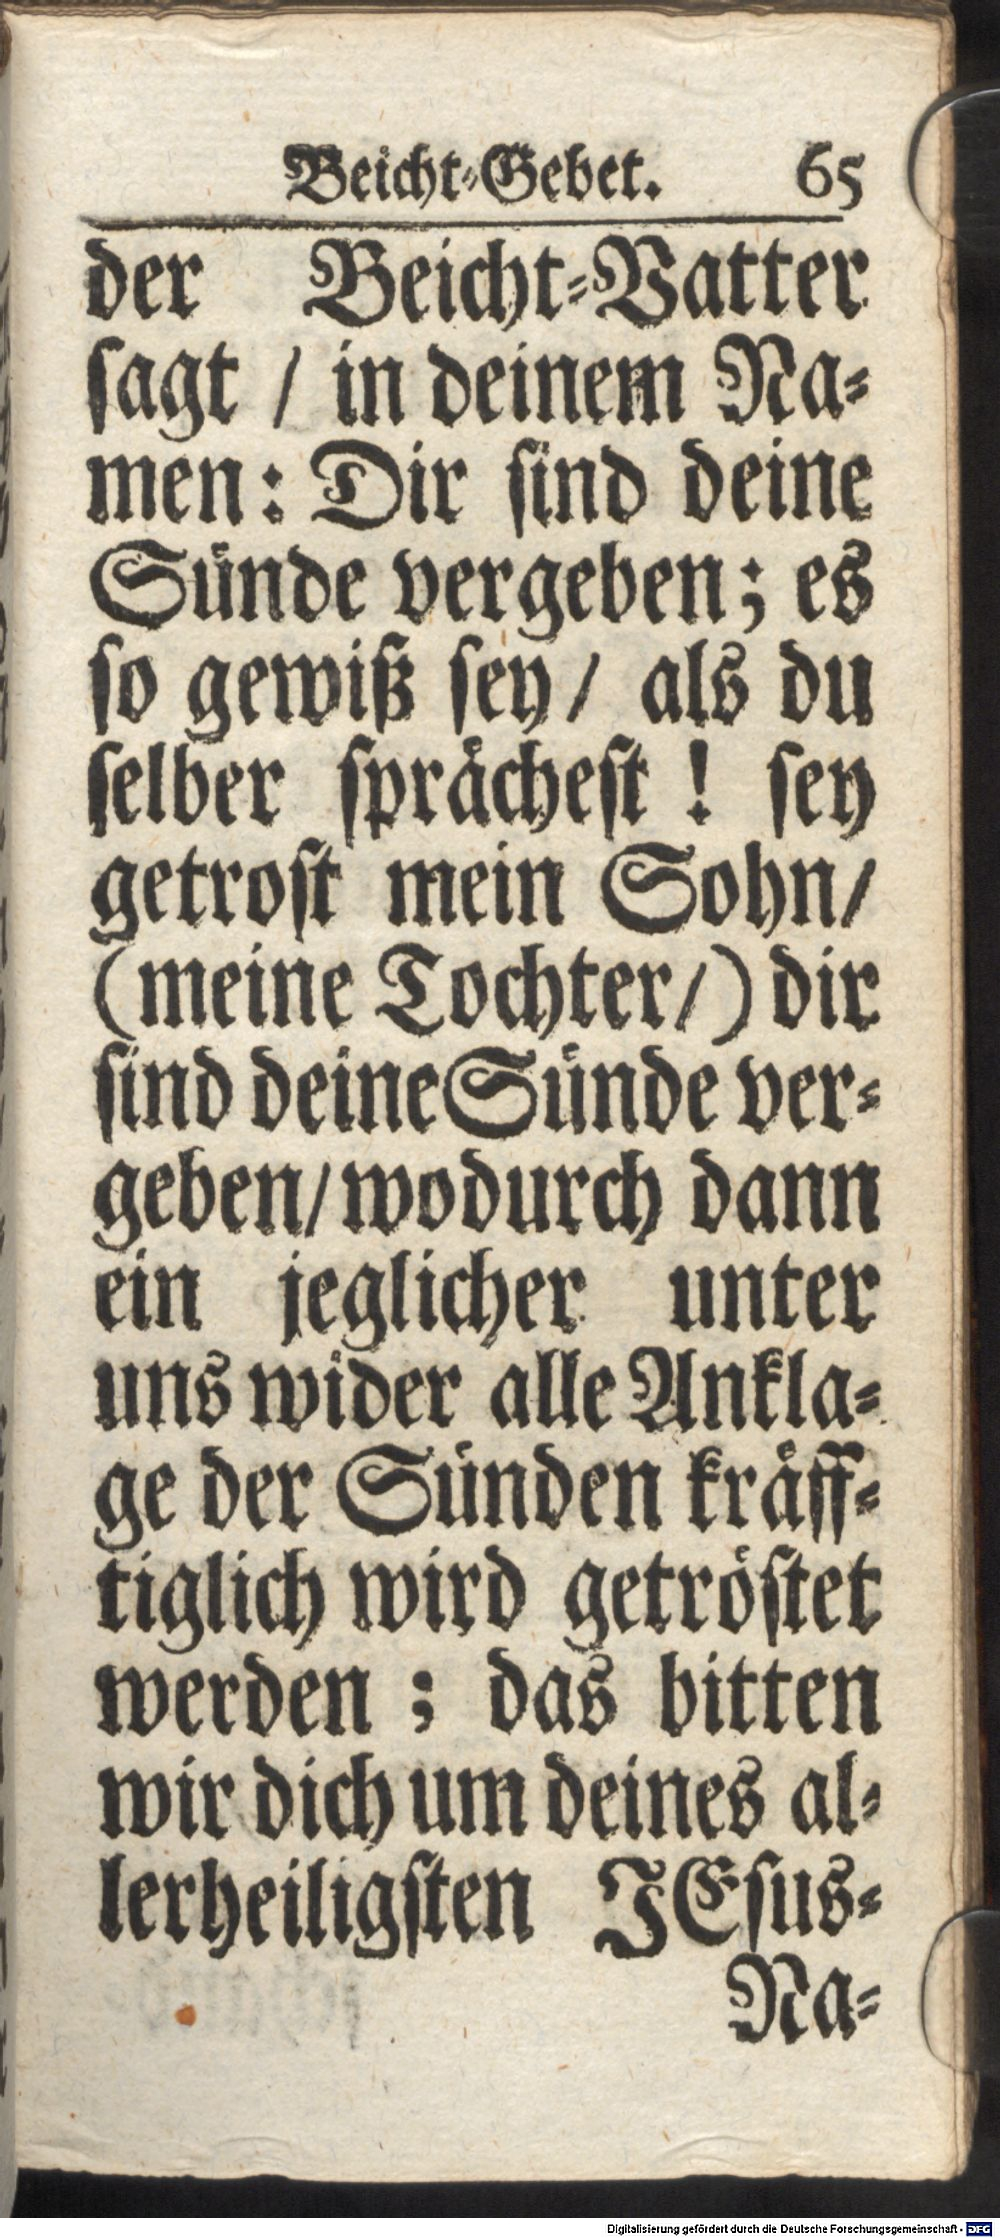 Beicht-Gebet. 65
der Beicht-Vatter
sagt / in deinem Na-
men: Dir sind deine
Sünde vergeben; es
so gewiß sey / als du
selber sprächest ! sey
getrost mein Sohn/
(meine Tochter/) dir
sind deine Sünde ver-
geben/ wodurch dann
ein jeglicher unter
uns wider alle Ankla-
ge der Sünden kräff-
tiglich wird getröstet
werden ; das bitten
wir dich um deines al-
lerheiligsten JEsus-
Na-
Digitalisierung gefördert durch die Deutsche Forschungsgemeinschaft - DFG